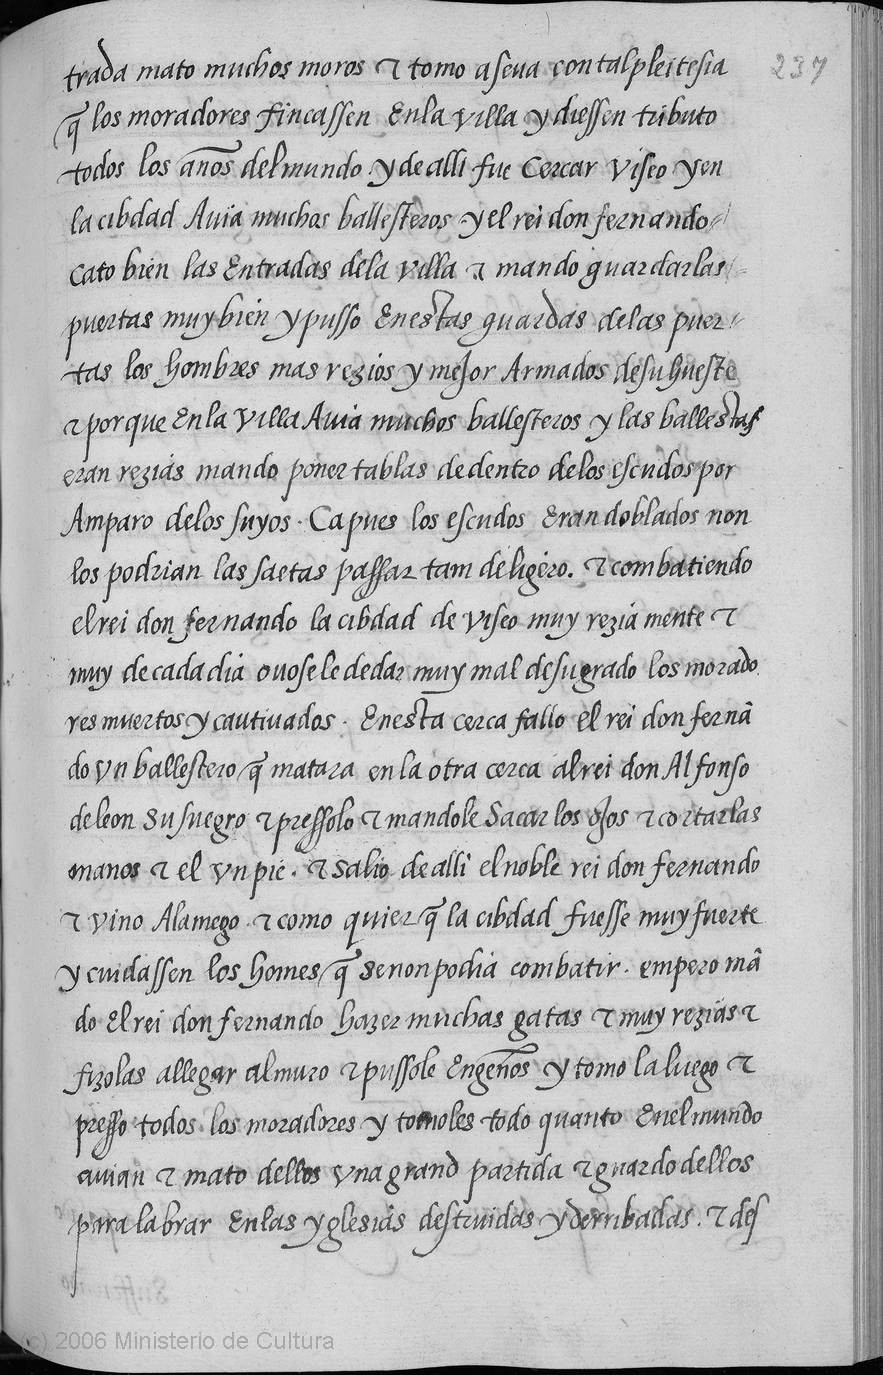 trada mato muchos moros τ tomo aseua con tal pleitesia
237
q̃ los moradores fincassen Enla villa y diessen tributo
todos los anõs del mundo. y de alli fue Cercar viseo y en
la cibdad Auia muchos ballesteros y el rei don fernando
Cato bien las Entradas dela villa τ mando guardar las
puertas muy bien y pusso En estas guardas delas puer
tas los hombres mas rezios y mejor Armados de su hueste
τ por que Enla villa Auia muchos ballesteros y las ballestas
eran rezias mando poner tablas de dentro delos escudos por
Amparo delos suyos. Ca pues los escudos Eran doblados non
los podrian las saetas passar tam de ligero. τ combatiendo
el rei don fernando la cibdad de viseo muy rezia mente τ
muy de cada dia ouosele de dar muy mal de su grado los morado
res muertos y cautiuados. En esta cerca fallo el rei don fernã
do vn ballestero q̃ matara en la otra cerca al rei don Alfonso
de leon su suegro τ pressolo τ mandole Sacar los ojos τ cortar las
manos τ el vn pie. τ salio de alli el noble rei don fernando
τ vino Alamego τ como quier q̃ la cibdad fuesse muy fuerte
y cuidassen los homes q̃ se non podia combatir. empero mã
do El rei don fernando hazer muchas gatas τ muy rezias τ
fizolas allegar al muro τ pussole Engenõs y tomo la luego τ
presso todos los moradores y tomoles todo quanto Enel mundo
auian τ mato dellos vna grand partida τ guardo dellos
para labrar Enlas yglesias destruidas y derribadas. τ des
(c) 2006 Ministerio de Cultura